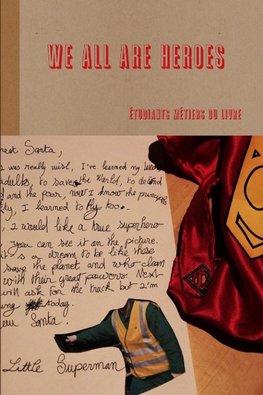 WE ALL ARE HEROES
ÉTUDIANTS MÉTIERS DU LIVRE
Santa,
was really wise, I've learned my
to save the World, to defend
and the poor, now I know the
I learned to fly too.
I would like a true superhero
You can see it on the picture.
it's a dream to be like these
save the planet and who clean
with their great powers. Next
will ask for the truck but I'm
today.
Santa.
Little Superman
S